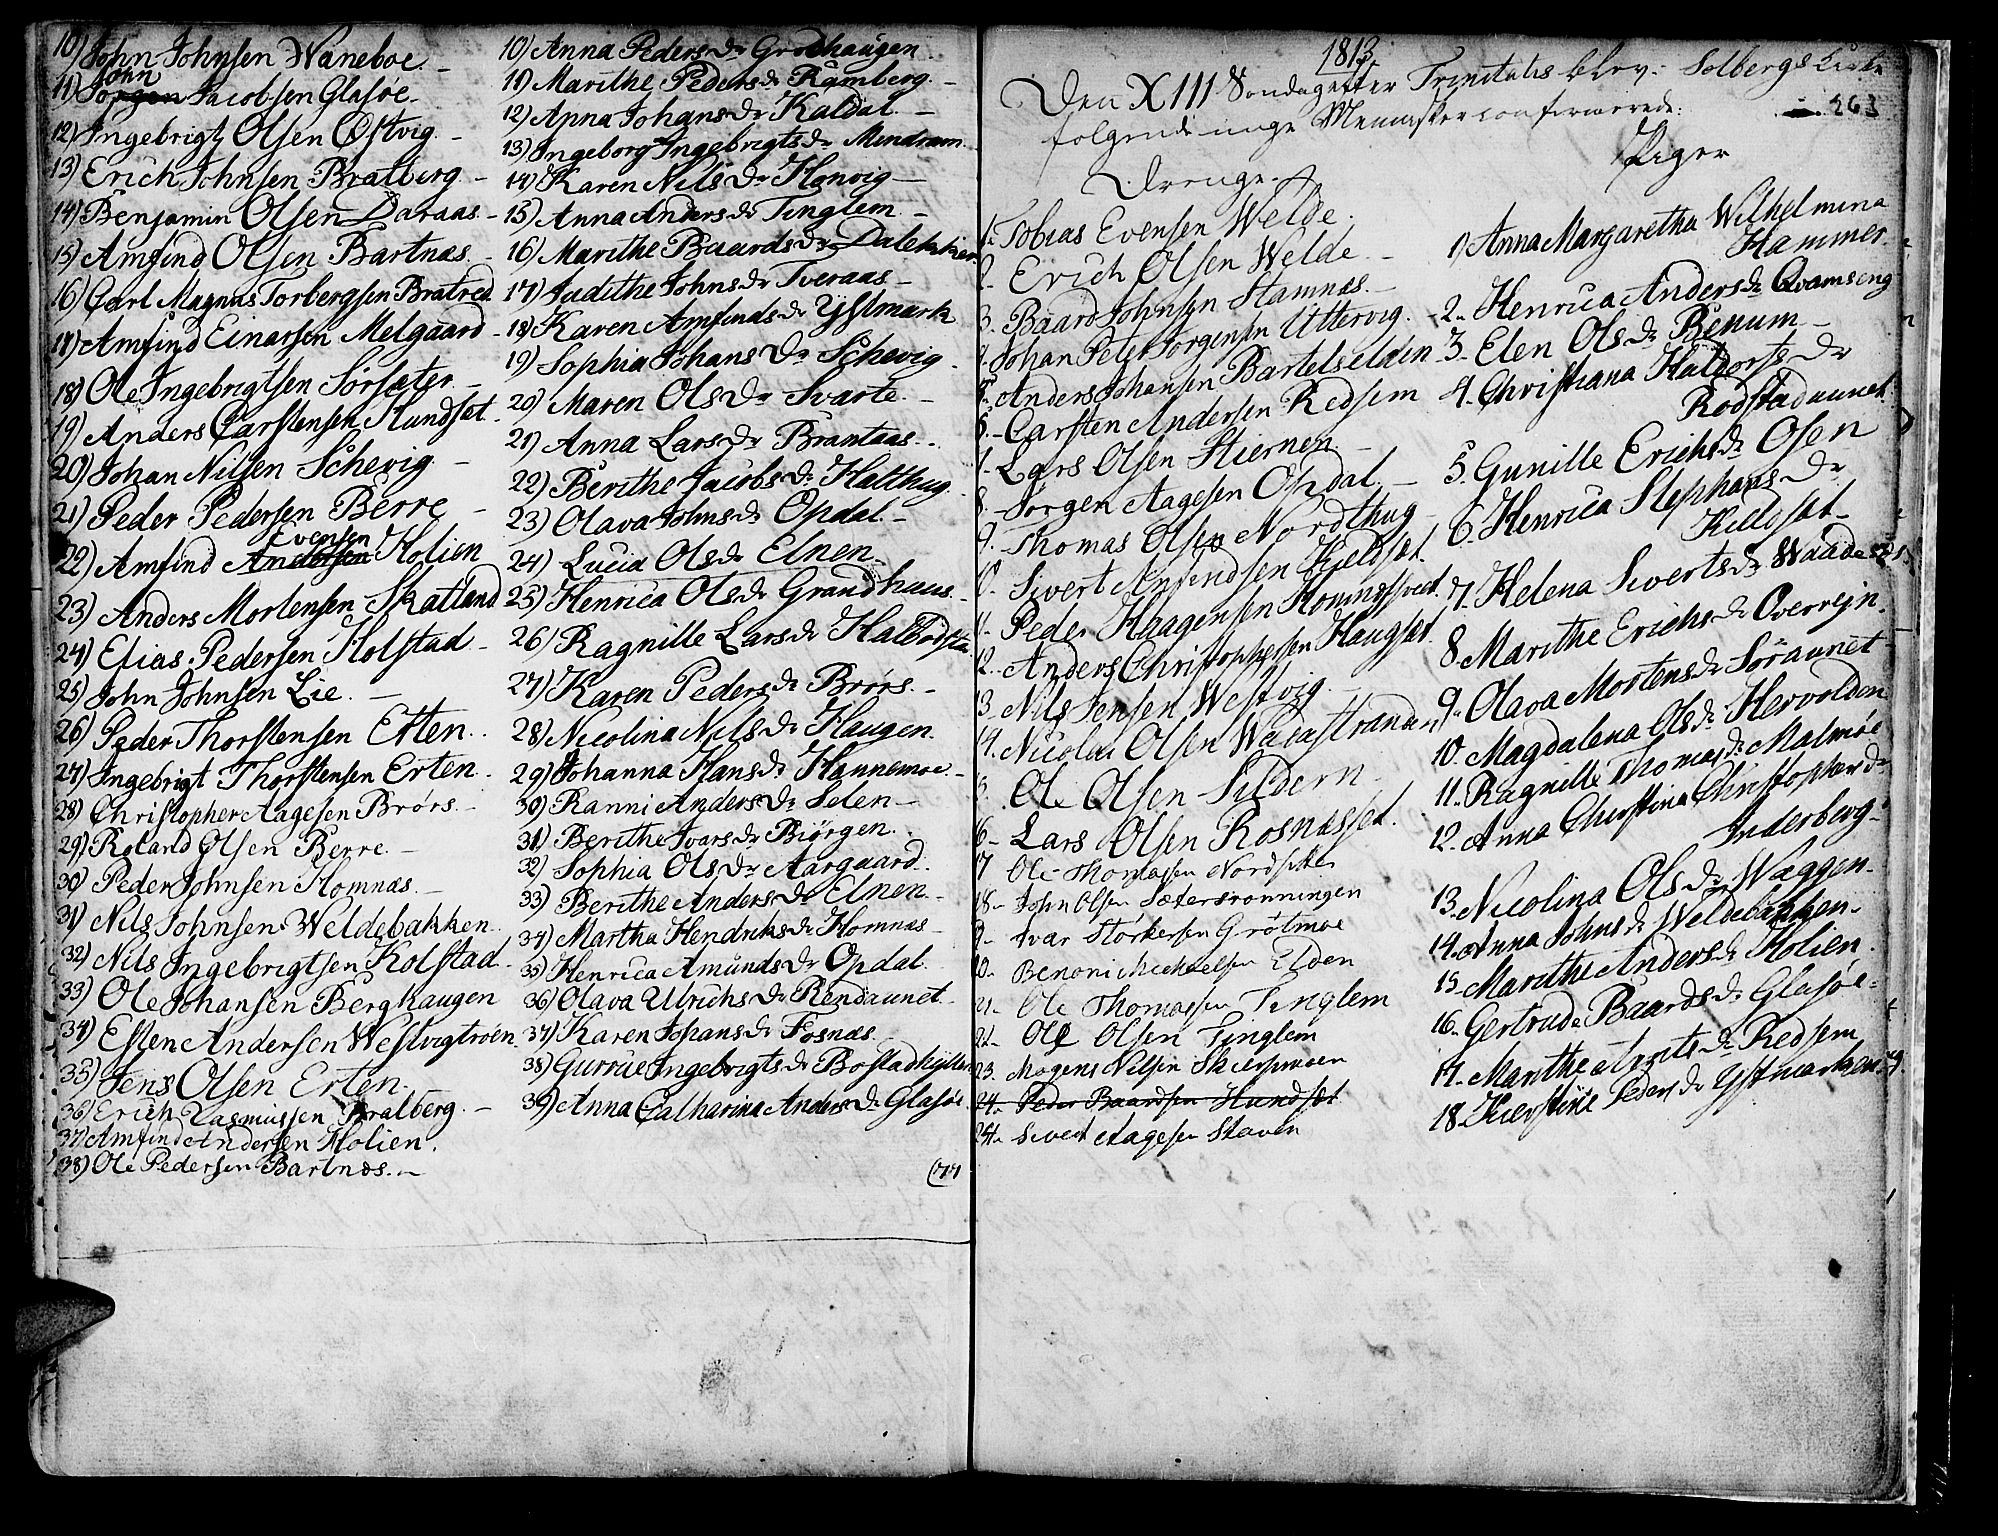 10) John Johnsen Waneboe. -
John
11) Jørgen Jacobsen Glasøe. -
12) Ingebrigt Olsen Østvig -
13) Erich Johnsen Bratberg -
14) Benjamin Olsen Daraas -
15) Amfind Olsen Bartnæs -
16) Carl Magnus Torbergsen Bratred
17) Amfind Einarsen Melgaard -
18) Ole Ingebrigtsen Sørsæter -
19) Anders Carstensen Hundsæt -
20) Johan Nilsen Schevig -
21) Peder Pedersen Berre -
Evensen
22) Amfind Andersen Holien
23) Anders Mortensen Skatland
24) Elias Pedersen Holstad -
25) John Johnsen Lie. -
26) Peder Thorstensen Erten.
27) Ingebrigt Thorstensen Erten.
28) Christopher Aagesen Brørs. -
29) Roland Olsen Berre. -
30) Peder Johnsen Homnæs. -
31) Nils Johnsen Weldebakken.
32) Nils Ingebrigtsen Kolstad -
33) Ole Johansen Berghaugen
34) Esten Andersen Westvigtrøen.
35) Jens Olsen Erten.
36) Erich Rasmussen Bratberg. -
37) Amfind Andersen Holien.
38) Ole Pedersen Bartnæs. -
10) Anna Peders Dr Grodhaugen
11) Marithe Peders Dr Ramberg. -
12) Anna Johans Dr Kaldal. -
13) Ingeborg Ingebrigts Dr Mindram.
14) Karen Nils Dr Honvig -
15) Anna Anders Dr Tinglem. -
16) Marithe Baards Dr Dalekker
17) Judithe Johns Dr Tveraas. -
18) Karen Amfinds Dr Ystmark
19) Sophia Johans Dr Schevig -
20) Maren Ols Dr Svarte. -
21) Anna Lars Dr Brantaas. -
22) Berithe Jacobs Dr Halthug.
23) Olava Johns Dr Opdal. -
24) Lucia Ols Dr Elnen
25) Henrica Ols Dr Grandhaus -
26) Ragnille Lars Dr
27) Karen Peders Dr Brørs. -
28) Nicolina Nils Dr Haugen.
29) Johanna Hans Dr Hannemoe -
30) Ranni Anders Dr Selen -
31) Berithe Ivars Dr Biørgen.
32) Sophia Ols Dr Aargaard.
33) Berithe Anders Dr Elnen. -
34) Martha Hendriks Dr Homnæs -
35) Henrica Amunds Dr Opdal.
36) Olava Ulrichs Dr Rendaunet -
37) Karen Johans Dr Fosnæs.
38) Gurrue Ingebrigts Dr
39) Anna Catharina Anders Dr Glasøe.
(77
1813
Den XIII Søndag efter Trinitatis blev i Solbergs Kirke
følgende unge Mennesker confirmerede:
263
Drenge.
1. Tobias Evensen Welde.
2. Erich Olsen Welde. -
3. Baard Johnsen Hamnæs. -
4. Johan Peter Jørgensen Uttervig.
5. Anders Johansen Bartelselden
6. Carsten Andersen Redsem
7. Lars Olsen Hiernen -
8. Jørgen Aagesen Opdal. -
9. Thomas Olsen Nordthug
10. Sivert Amfindsen Kieldsæt.
11. Peder Haagensen
12. Anders Christophersen Haugsæt.
13. Nils Jensen Westvig
14. Nicolai Olsen Wadastranden
15. Ole Olsen Sildern
16. Lars Olsen Rosnæsset.
17 Ole Thomassen
18. John Olsen Sætersrønningen
19. Ivar Størkersen Grøtmoe
20. Benoni Michaelsen Elden
21. Ole Thomassen Tinglem
22. Ole Olsen Tinglem
23. Mogens Nilsen Skierpmoen
24. Peder Baardsen Hundsæt
24. Sivert Aagesen Staven
Piger
1, Anna Margaretha Wilhelmina
Hammer.
2. Henrica Anders Dr Qvamseng
3. Elen Ols Dr Renum -
4. Christiana Haldors Dr
Rodstadaunet.
5. Gunille Erichs Dr Osen
6. Henrica Stephans Dr
Kieldsæt -
7. Helena Siverts Dr
8. Marithe Erichs Dr Overrejn.
9. Olava Mortens Dr Søraunet -
10. Magdalena Ols Dr Hervolden
11. Ragnille Thomas Dr Malmøe
12. Anna Christina Christopher Dr
Inderberg -
13. Nicolina Ols Dr Waggen.
14. Anna Johns Dr Weldebakken.
15. Marithe Anders Dr Holien.
16. Gertrude Baards Dr Glasøe -
17. Marithe Arnts Dr Redsem
18. Kierstine Peders Dr